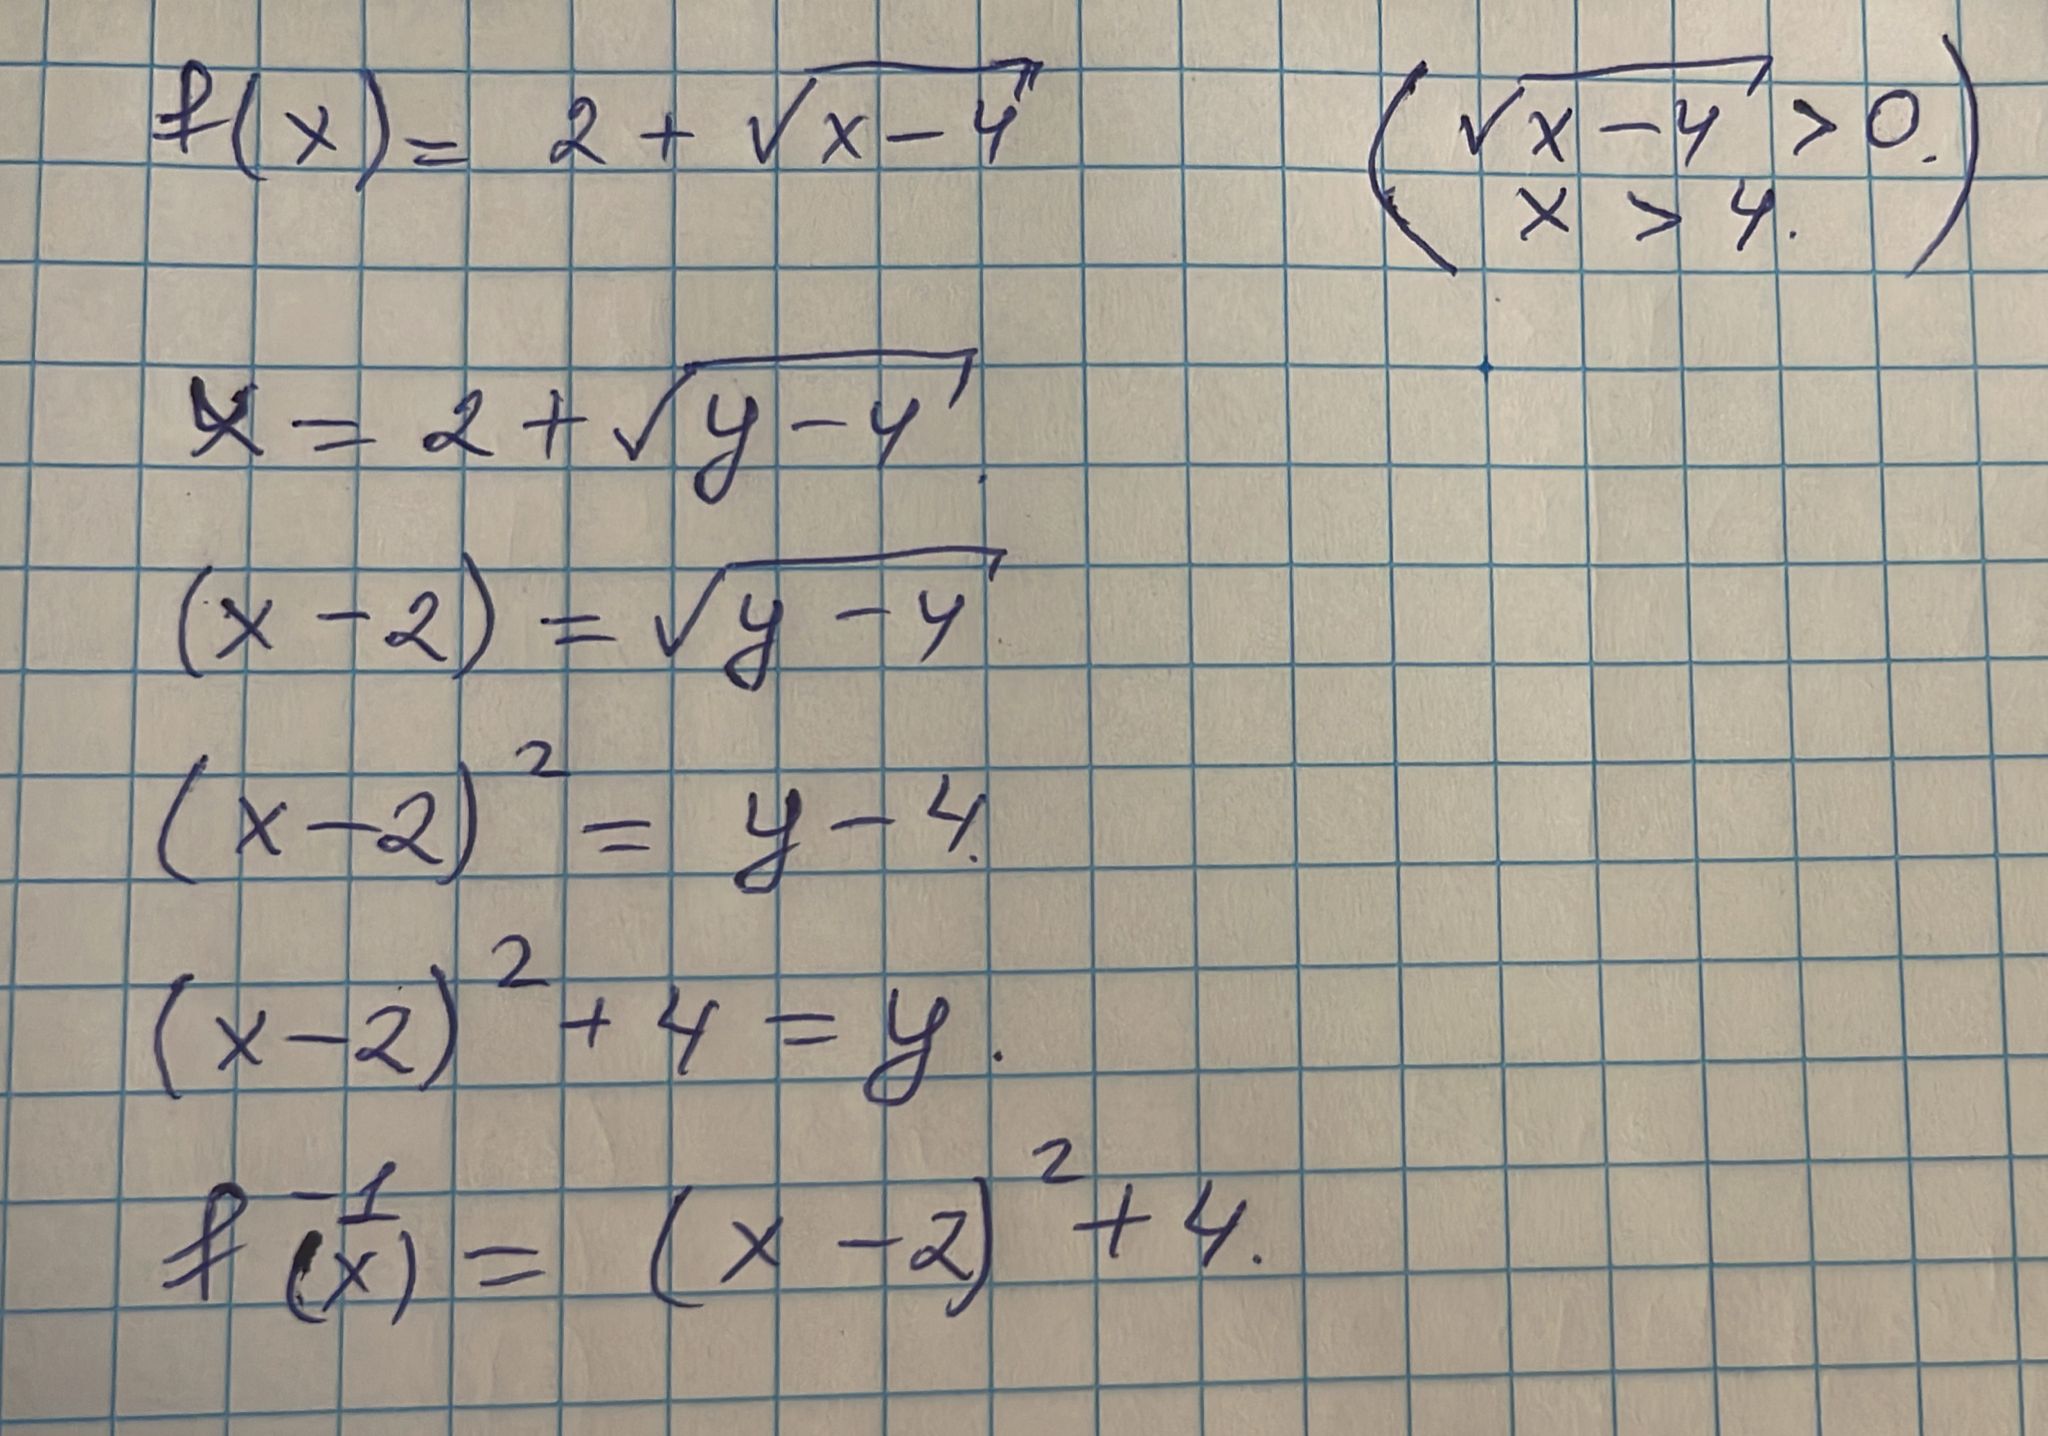 f(x) = 2 + √(x-4)
(√(x-4) > 0.
x > 4.)
x = 2 + √(y-4)
(x-2) = √(y-4)
(x-2)² = y-4.
(x-2)² + 4 = y.
f⁻¹(x) = (x-2)² + 4.